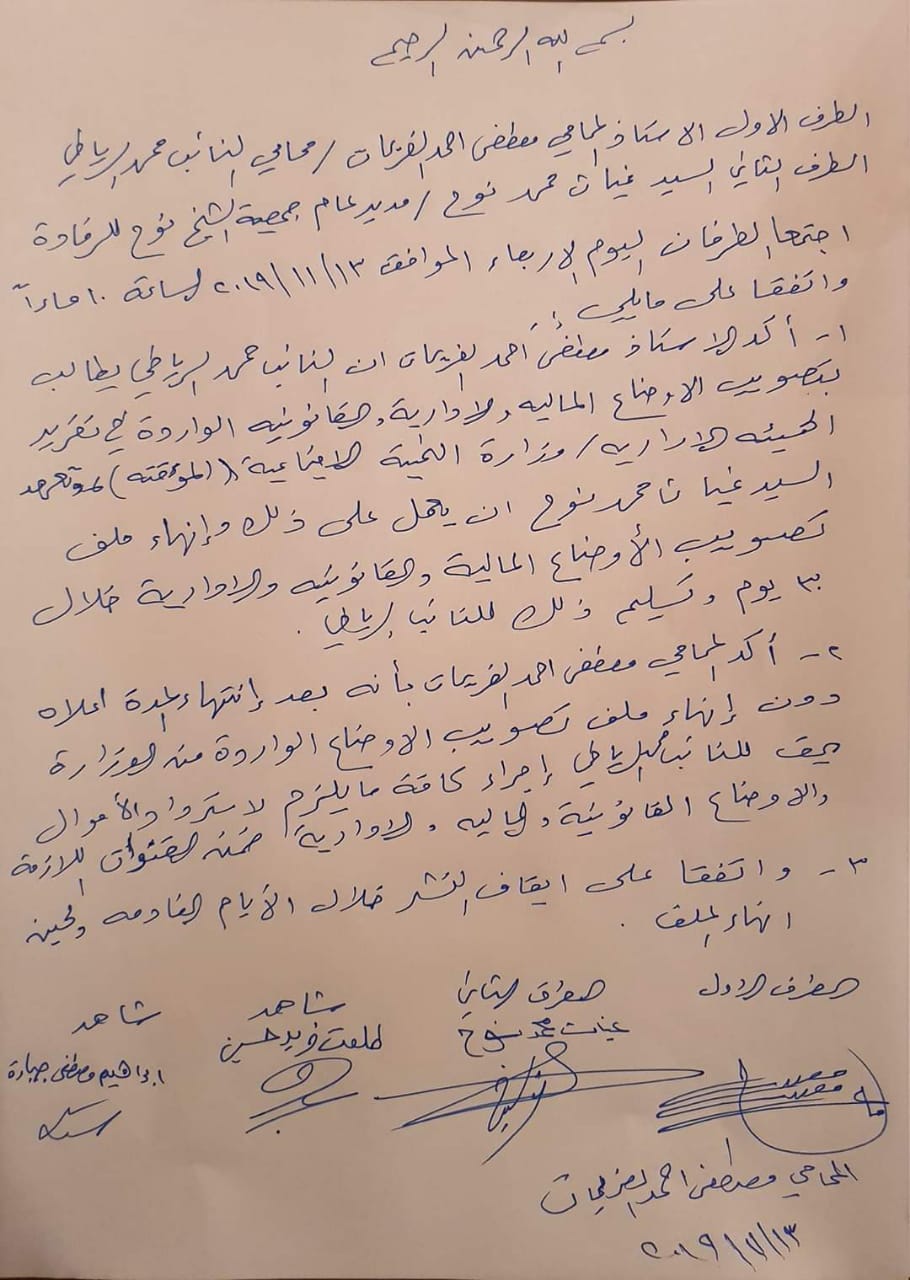 بسم الله الرحمن الرحيم
الطرف الاول الاستاذ المحامي مصطفى احمد الفريحات / محامي النائب محمد الرياطي
الطرف الثاني السيد غياث محمد نوح / مدير عام جمعية الشيخ نوح للرفادة
اجتمعا الطرفان اليوم الاربعاء الموافق ٢٠١٩/١١/١٣ الساعة ١٠ مساءاً
واتفقا على مايلي :
١- أكد الاستاذ مصطفى أحمد الفريحات ان النائب محمد الرياطي يطالب
بتصويب الاوضاع الماليه والادارية والقانونيه الواردة في تقرير
الهيئه الاداريه / وزارة التنمية الاجتماعية (المؤقته) وتعهد
السيد غياث محمد نوح ان يعمل على ذلك وإنهاء ملف
تصويب الأوضاع المالية والقانونيه والادارية خلال
٣٠ يوم وتسليم ذلك للنائب الرياطي .
٢- أكد المحامي مصطفى احمد الفريحات بأنه بعد إنتهاء المدة اعلاه
دون إنهاء ملف تصويب الاوضاع الواردة من الوزارة
يحق للنائب الرياطي إجراء كافة ما يلزم لاسترداد الأموال
والاوضاع القانونية والماليه والادارية ضمن القنوات اللازمة
٣- واتفقا على ايقاف النشر خلال الأيام القادمه ولحين
انهاء الملف .
الطرف الاول الطرف الثاني شاهد شاهد
غياث محمد نوح طلعت فريد حسين ابراهيم مصطفى جبارة
المحامي مصطفى احمد الفريحات